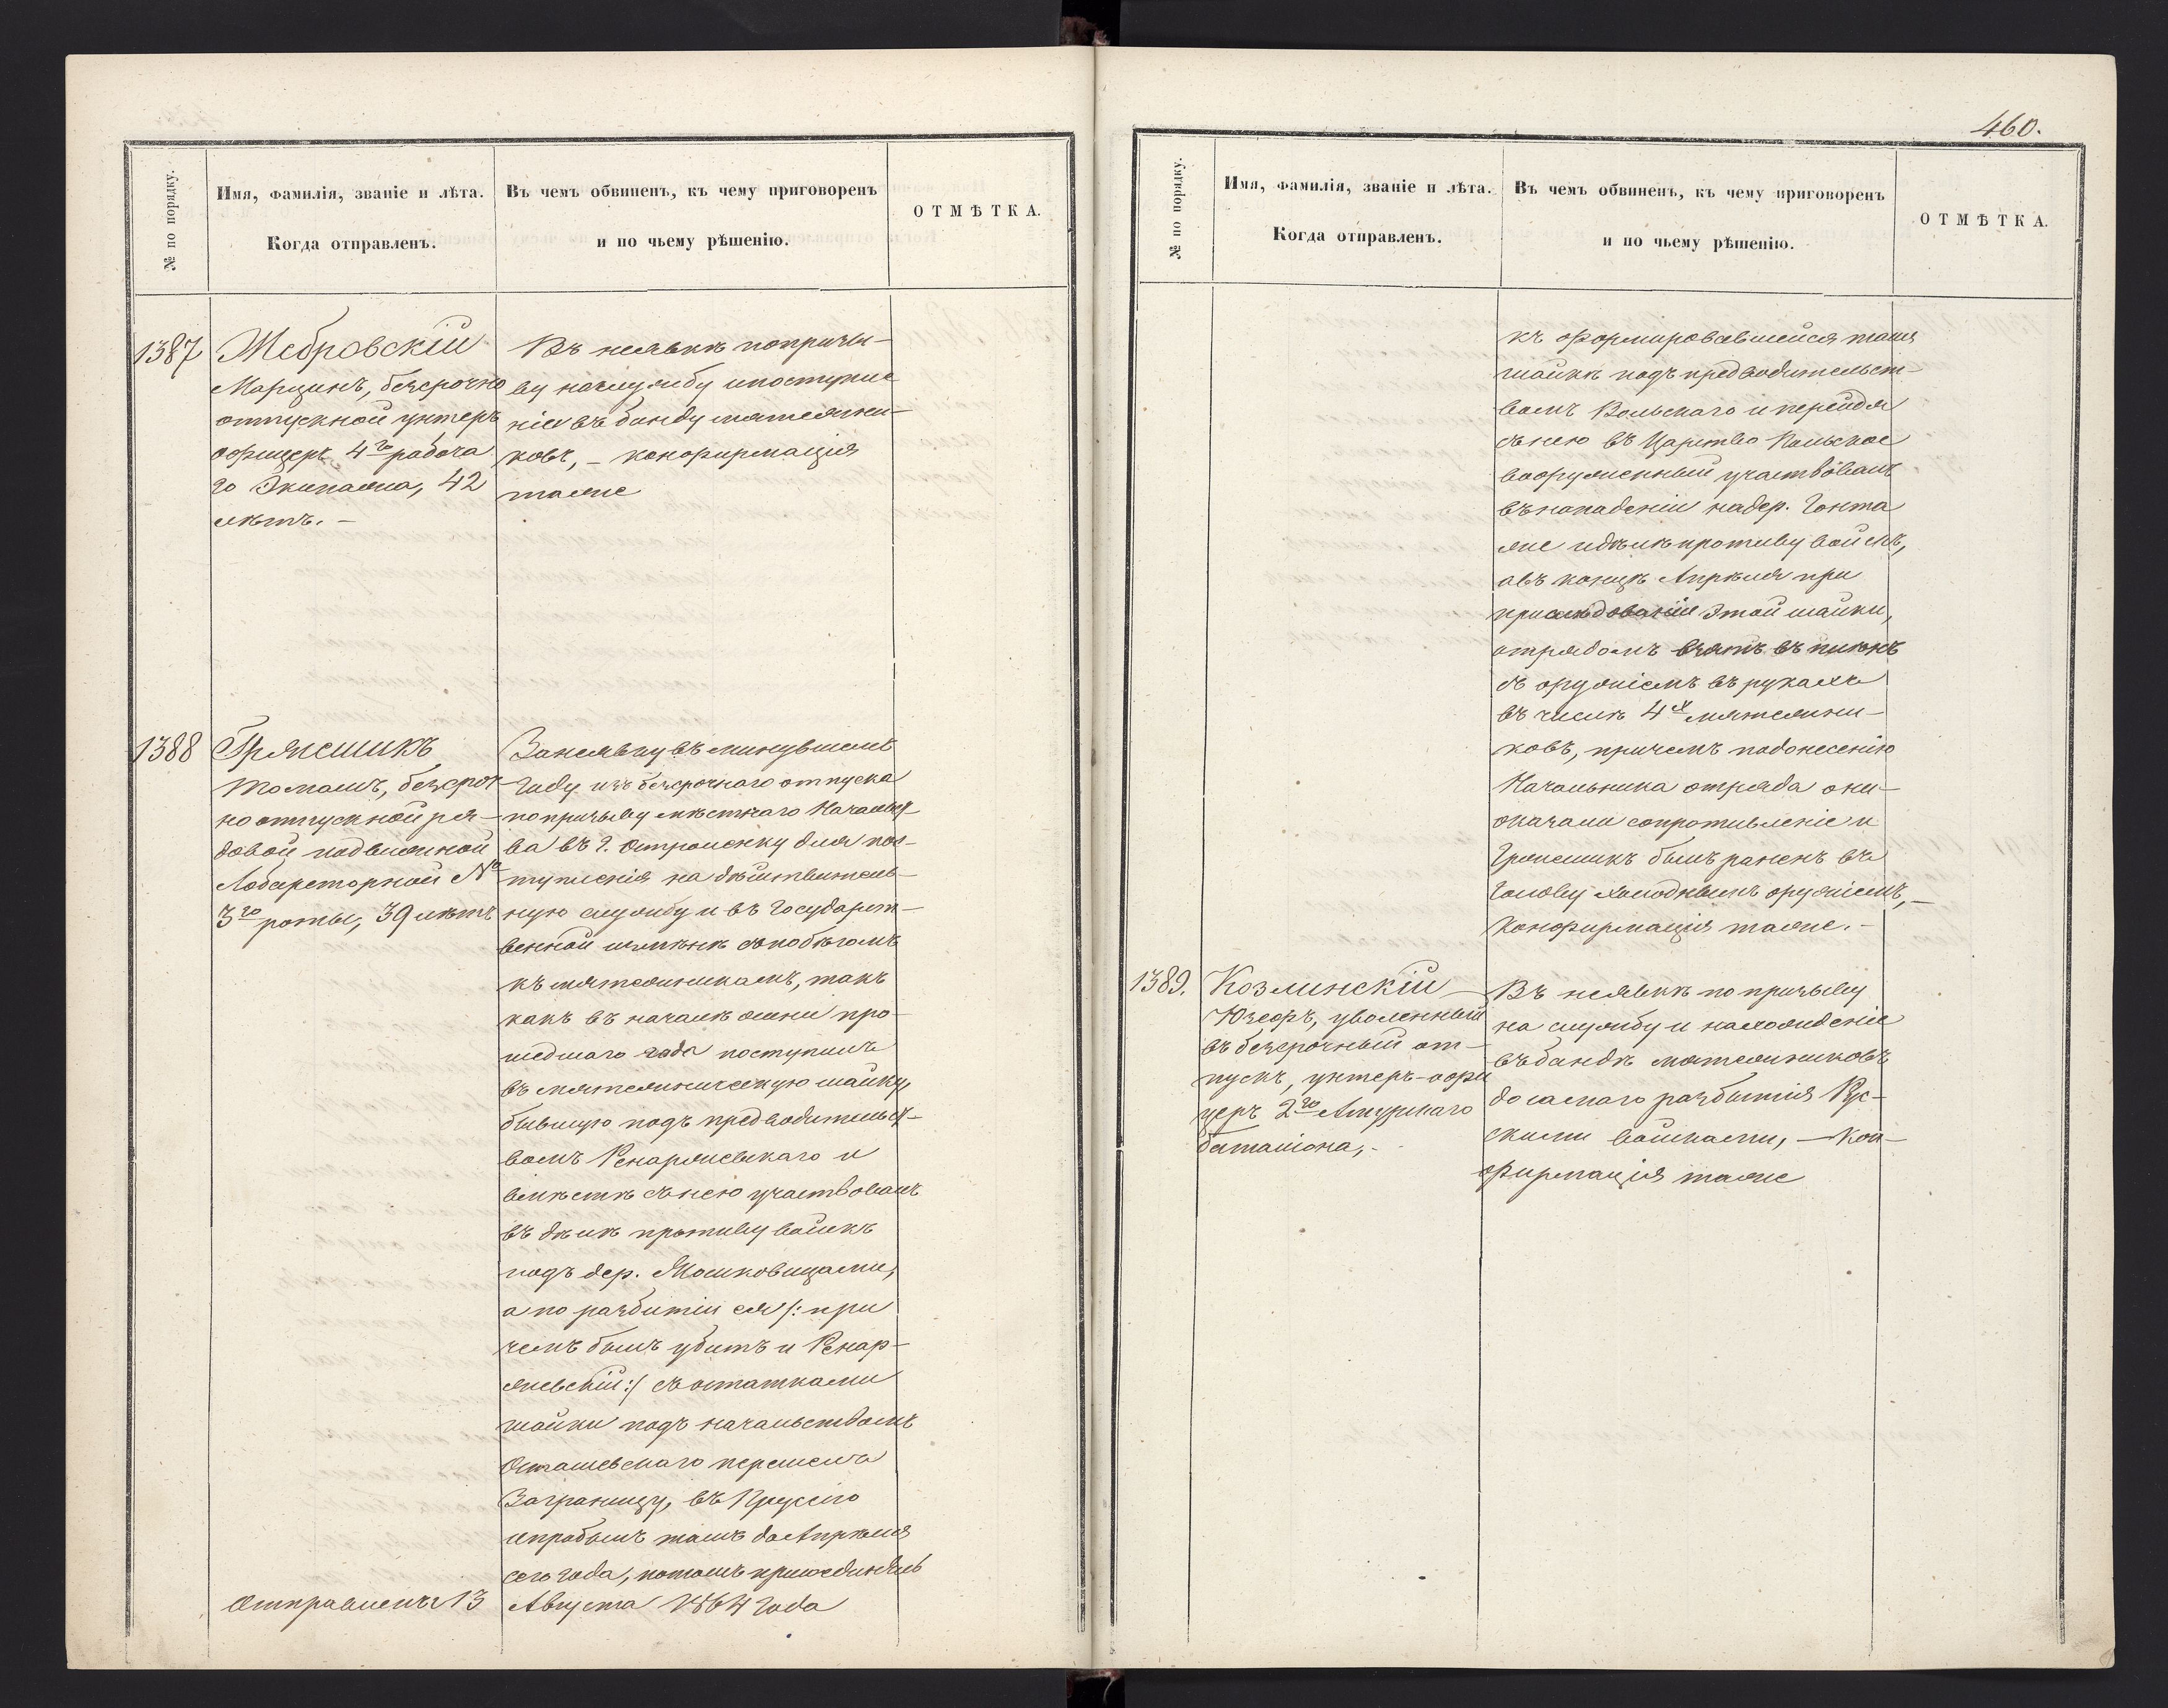 № по порядку.
Имя, фамилія, званіе и лѣта.
Когда отправленъ.
Въ чемъ обвиненъ, къ чему приговоренъ
и по чьему рѣшенію.
ОТМѢТКА.
1387
Жебровскій
Марцинъ, безсрочно
отпускной унтеръ
офицеръ 4го рабоча
го Экипажа, 42
лѣтъ. –
Въ неявкѣ по призы-
ву на службу и поступле
ніи въ банду мятежни-
ковъ, – конфирмація
таже
1388
Гржешикъ
Томашъ, безсроч
но отпускной ря-
довой подвижной
Лабораторной №
3го роты, 39 лѣтъ
За неявку въ минувшемъ
Году изъ безсрочнаго отпуска
по призыву мѣстнаго Начальст-
ва въ г. Остроленку для пос-
тупленія на дѣйствитель-
ную службу и въ Государст-
венной измѣнѣ съ побѣгомъ
къ мятежникамъ, такъ
какъ въ началѣ осени про-
шедшаго года поступилъ
въ мятежническую шайку,
бывшую подъ предводительст-
вомъ Ренаржевскаго и
вмѣстѣ съ нею участвовалъ
въ дѣлѣ противу войскъ
подъ дер. Мошковицами,
а по разбитіи ея /: при
чемъ былъ убитъ и Ренар-
жевскій :/ съ остатками
шайки подъ начальствомъ
Осташевскаго перешелъ
Заграницу, въ Пруссію
и пробылъ тамъ до Апрѣля
сего года, потомъ присоединясь
Отправленъ 13 Августа 1864 Года
460.
№ по порядку.
Имя, фамилія, званіе и лѣта.
Когда отправленъ.
Въ чемъ обвиненъ, къ чему приговоренъ
и по чьему рѣшенію.
ОТМѢТКА.
къ формировавшейся тамъ
шайкѣ подъ предводительст-
вомъ Вольскаго и перейдя
съ нею въ Царство Польское
вооруженный участвовалъ
въ нападеніи на дер. Гонта
же и дѣлѣ противу войскъ,
а въ концѣ Апрѣля при
преслѣдованіи этой шайки,
отрядомъ взятъ въ плѣнъ
съ оружіемъ въ рукахъ
въ числѣ 4х мятежни-
ковъ, причемъ по донесенію
Начальника отряда они-
оказали сопротивленіе и
Гржешикъ былъ раненъ въ
голову холоднымъ оружіемъ, –
Конфирмація таже. –
1389.
Козлинскій
Юзефъ, уволенный
въ безсрочный от-
пускъ, унтеръ-офи
церъ 2го Амурскаго
баталіона, -
Въ неявкѣ по призыву
на службу и нахожденіе
въ бандѣ мятежниковъ
до самаго разбитія Рус-
скими войсками, – Кон-
фирмація таже